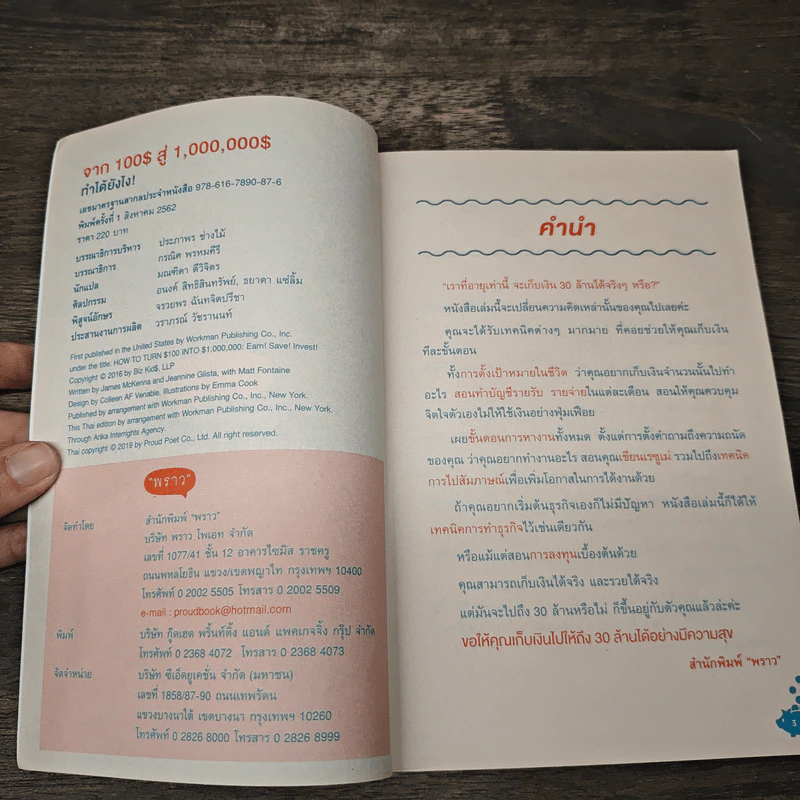 จาก 100$ สู่ 1,000,000$
ทำได้ยังไง!
เลขมาตรฐานสากลประจำหนังสือ 978-616-7890-87-6
พิมพ์ครั้งที่ 1 สิงหาคม 2562
ราคา 220 บาท
บรรณาธิการบริหาร ประภาพร ช่างไม้
บรรณาธิการ กรณิศ พรหมคีรี
นักแปล มณฑิตา ดีวิจิตร
ศิลปกรรม อนงค์ สิทธิสินทรัพย์, ธยาดา แซ่ลิ้ม
พิสูจน์อักษร จรวยพร ฉันทจิตปรีชา
ประสานงานการผลิต วราภรณ์ วัชรานนท์
First published in the United States by Workman Publishing Co., Inc.
under the title: HOW TO TURN $100 INTO $1,000,000; Earn! Save! Invest!
Copyright © 2016 by Biz Kid$, LLP
Written by James McKenna and Jeannine Glista, with Matt Fontaine
Design by Colleen AF Venable, Illustrations by Emma Cook
Published by arrangement with Workman Publishing Co., Inc., New York.
This Thai edition by arrangement with Workman Publishing Co., Inc., New York.
Through Arika Interrights Agency.
Thai copyright © 2019 by Proud Poet Co., Ltd. All right reserved.
"พราว"
จัดทำโดย สำนักพิมพ์ "พราว"
บริษัท พราว โพเอท จำกัด
เลขที่ 1077/41 ชั้น 12 อาคารไซมิส ราชครู
ถนนพหลโยธิน แขวง/เขตพญาไท กรุงเทพฯ 10400
โทรศัพท์ 0 2002 5505 โทรสาร 0 2002 5509
e-mail : proudbook@hotmail.com
พิมพ์ บริษัท กู๊ดเฮด พริ้นท์ติ้ง แอนด์ แพคเกจจิ้ง กรุ๊ป จำกัด
โทรศัพท์ 0 2368 4072 โทรสาร 0 2368 4073
จัดจำหน่าย บริษัท ซีเอ็ดยูเคชั่น จำกัด (มหาชน)
เลขที่ 1858/87-90 ถนนเทพรัตน
แขวงบางนาใต้ เขตบางนา กรุงเทพฯ 10260
โทรศัพท์ 0 2826 8000 โทรสาร 0 2826 8999
คำนำ
"เราที่อายุเท่านี้ จะเก็บเงิน 30 ล้านได้จริงๆ หรือ?"
หนังสือเล่มนี้จะเปลี่ยนความคิดเหล่านั้นของคุณไปเลยค่ะ
คุณจะได้รับเทคนิคต่างๆ มากมาย ที่คอยช่วยให้คุณเก็บเงิน
ทีละขั้นตอน
ทั้งการตั้งเป้าหมายในชีวิต ว่าคุณอยากเก็บเงินจำนวนนั้นไปทำ
อะไร สอนทำบัญชีรายรับ รายจ่ายในแต่ละเดือน สอนให้คุณควบคุม
จิตใจตัวเองไม่ให้ใช้เงินอย่างฟุ่มเฟือย
เผยขั้นตอนการหางานทั้งหมด ตั้งแต่การตั้งคำถามถึงความถนัด
ของคุณ ว่าคุณอยากทำงานอะไร สอนคุณเขียนเรซูเม่ รวมไปถึงเทคนิค
การไปสัมภาษณ์เพื่อเพิ่มโอกาสในการได้งานด้วย
ถ้าคุณอยากเริ่มต้นธุรกิจเองก็ไม่มีปัญหา หนังสือเล่มนี้ก็ได้ให้
เทคนิคการทำธุรกิจไว้เช่นเดียวกัน
หรือแม้แต่สอนการลงทุนเบื้องต้นด้วย
คุณสามารถเก็บเงินได้จริง และรวยได้จริง
แต่มันจะไปถึง 30 ล้านหรือไม่ ก็ขึ้นอยู่กับตัวคุณแล้วล่ะค่ะ
ขอให้คุณเก็บเงินไปให้ถึง 30 ล้านได้อย่างมีความสุข
สำนักพิมพ์ "พราว"
3